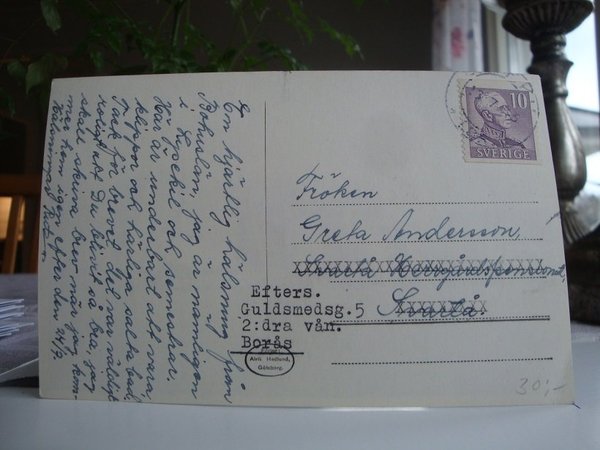 En hjärtlig hälsning från
Bohuslän, jag är nämligen
i Lysekil och semestrar.
Här är underbart att vara,
klippor och härliga salta bad.
Tack för brevet det var väldigt
roligt att Du blivit så bra, jag
skall skriva brev när jag kom-
mer hem igen efter den 14/7.
Hälsningar
10
SVERIGE
Fröken
Greta Andersson,
Svartå Herrgårdspensionat,
Svartå
Efters.
Guldsmedsg.5
2:dra vån.
Borås
Hedlund,
Göteborg.
30:-